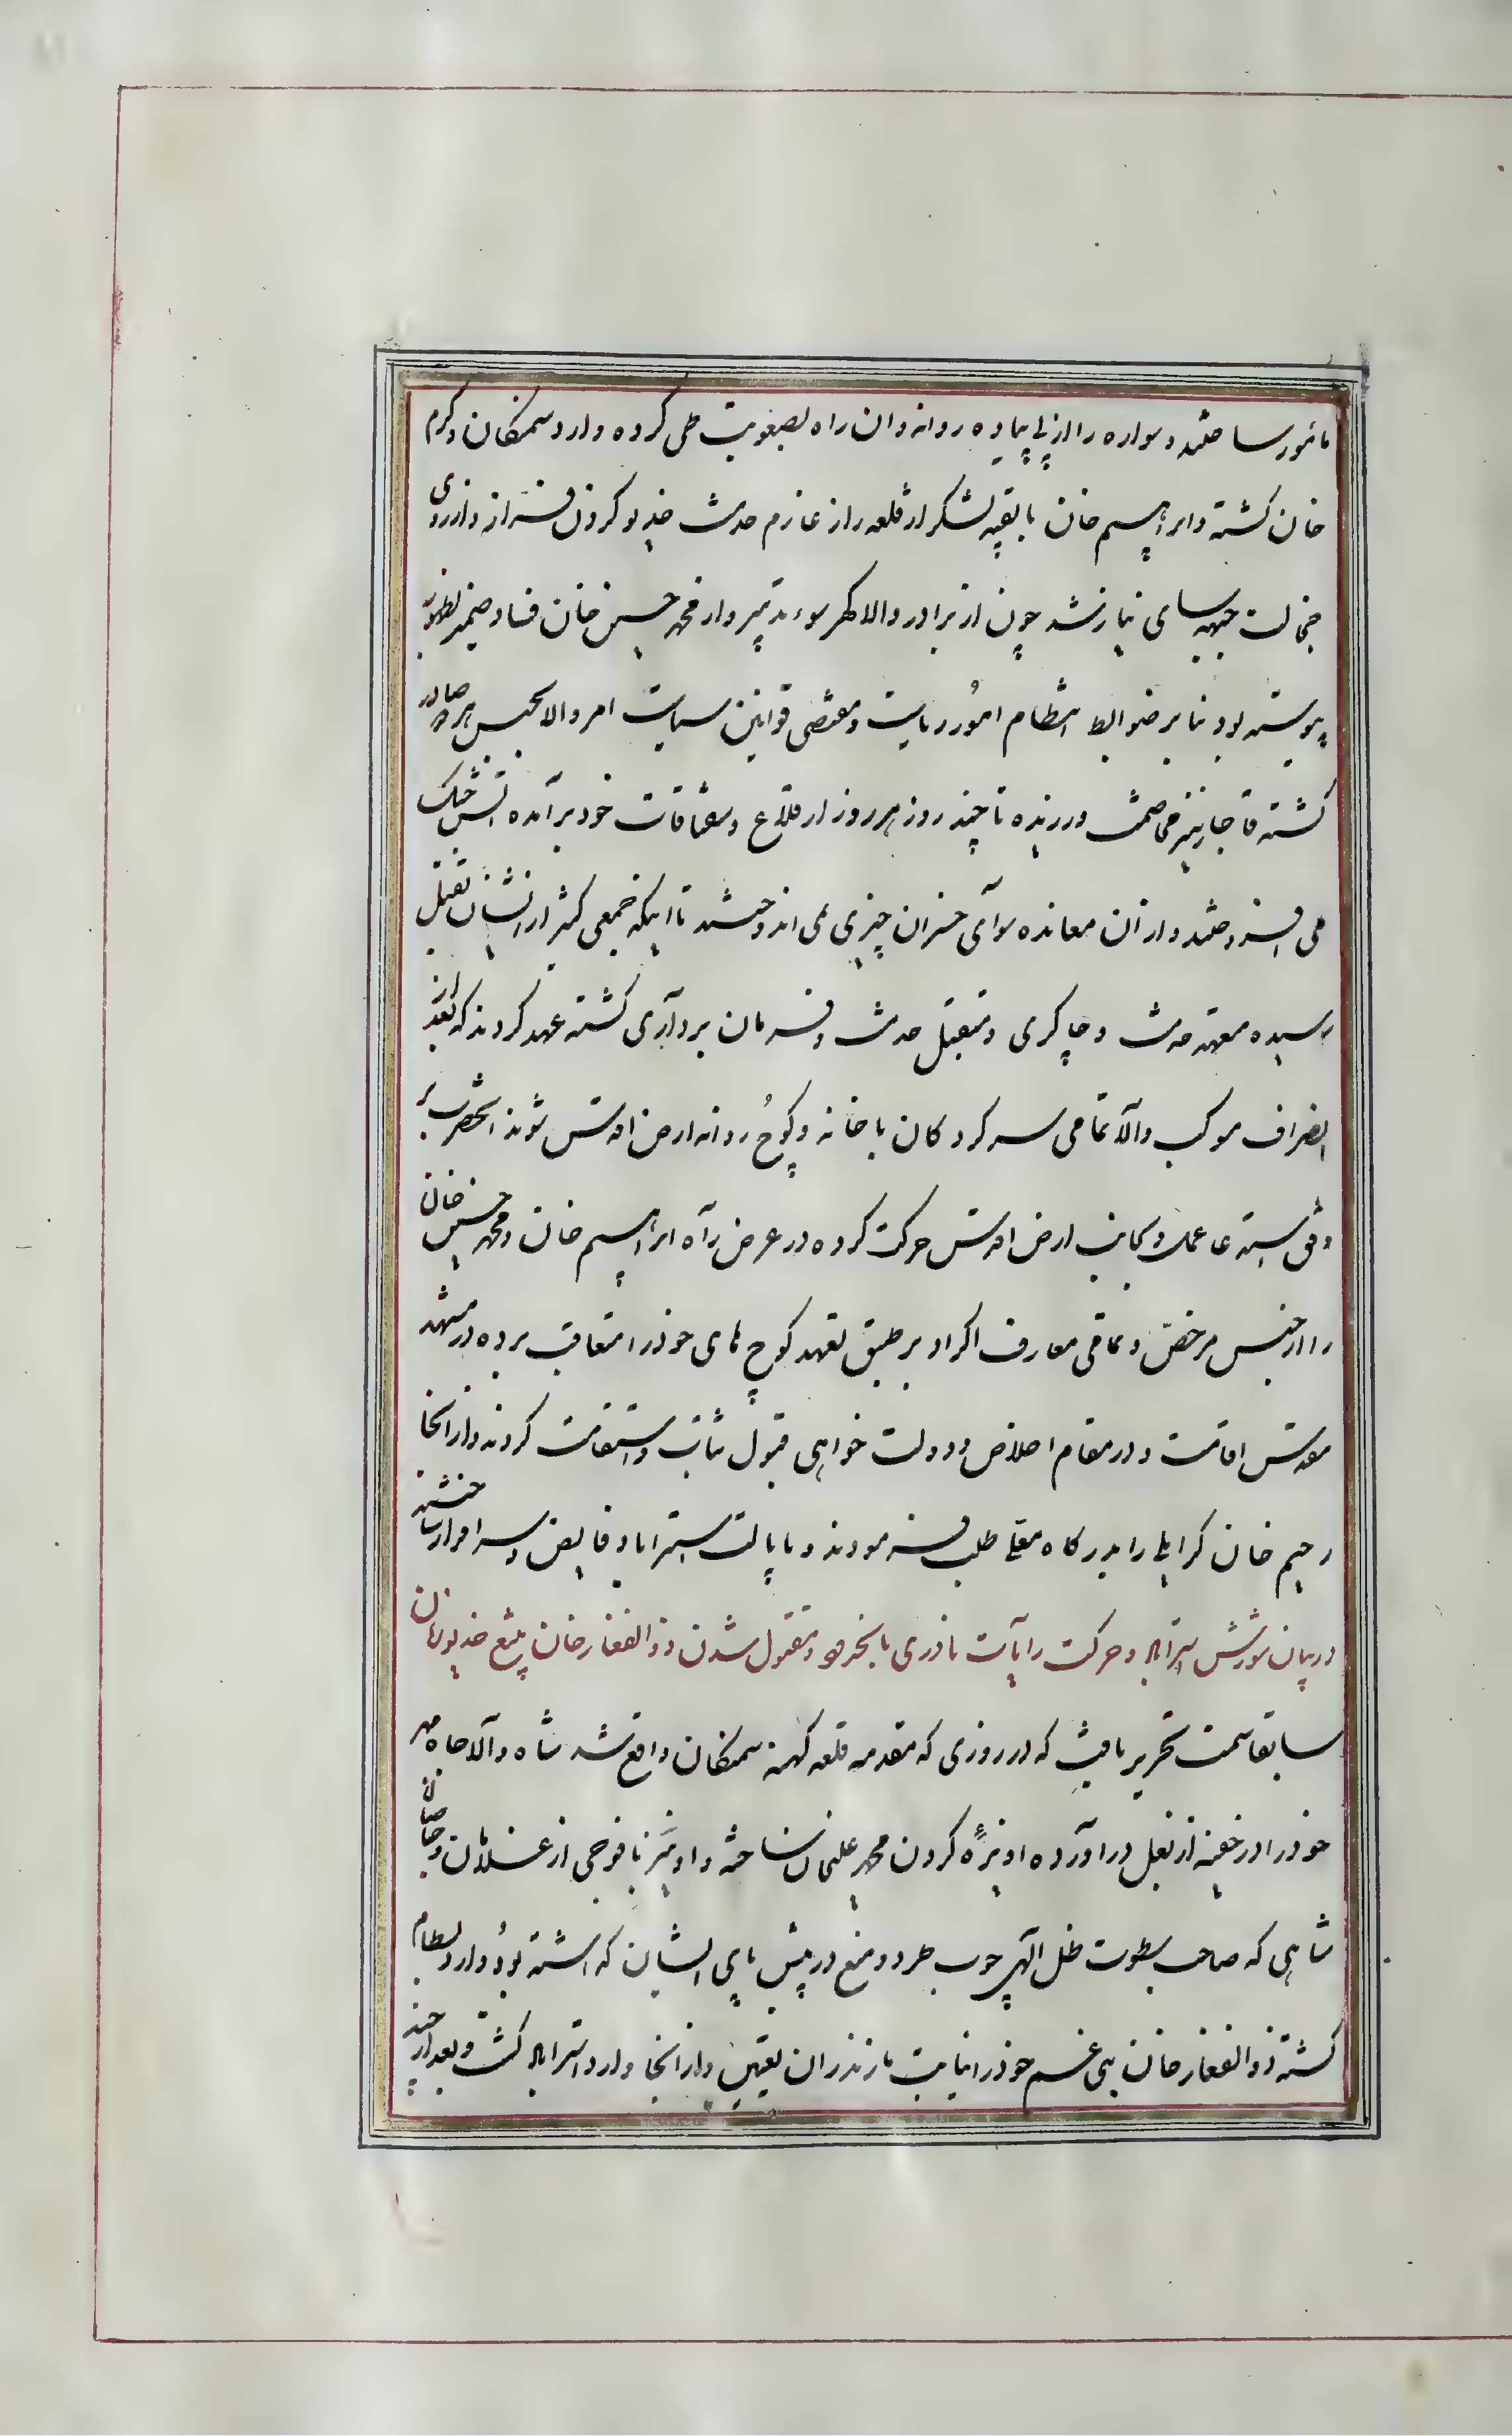 مأمور ساختند و سواره را از پی پیاده روانه و ان راه بصعوبت طی کرده وارد سمنکان و کرم
خان کشته و ابراهیم خان با بقیه لشکر از قلعه راز عازم خدمت خدیو کردون فراز و از روی
خجالت جبهه سای نیاز شد چون از برادر والا کهر سوء تدبیر و از محمد حسین خان فساد ضمیر بظهور
پیوسته بود بنا بر ضوابط انتظام امور ریاست و مقتضی قوانین سیاست امر والا بحبس هر دو صادر
کشته قاجا نیز مخاصمت ورزیده تا چند روز هر روز از قلاع و سقناقات خود برآمده آتش جنک
می افروختند و از ان معانده سوآی خسران چیزی نمی اندوختند تا اینکه جمعی کثیر از ایشان بقتل
رسیده متعهد خدمت و چاکری و متقبل خدمت و فرمان برداری کشته عهد کردند که بعد از
انصراف موکب والا تمامی سرکردکان با خانه و کوچ روانه ارض اقدس شوند انحضرت بر
وفق استدعا عمل و بجانب ارض اقدس حرکت کرده در عرض راه ابراهیم خان و محمد حسین خان
را از حبس مرخص و تمامی معارف اکراد بر طبق تعهد کوچ های خود را متعاقب برده در مشهد
مقدس اقامت و در مقام اخلاص و دولت خواهی قبول ثبات و استقامت کردند و از انجا
رحیم خان کرایلی را بدرکاه معلی طلب فرمودند و بایالت استراباد فایض و سرافراز ساختند
در بیان شورش استراباد و حرکت رایات نادری بانحدود و مقتول شدن ذوالفقار خان بتیغ خدیو زمان
سابقا سمت تحریر یافت که در روزی که مقدمه قلعه کهنه سمنکان واقع شد شاه والاجاه مهر
خود را در خفیه از بغل درآورده اویزهٔ کردن محمد علیخان ساخته و او نیز با فوجی از غلامان و خاصان
شاهی که صاحب سطوت ظل الهی چوب طرد و منع در پیش پای ایشان کذاشته بود وارد بسطام
کشته ذوالفقار خان بنی عم خود را بنیابت مازندران تعیین و از انجا وارد استراباد کشت و بعد از چند